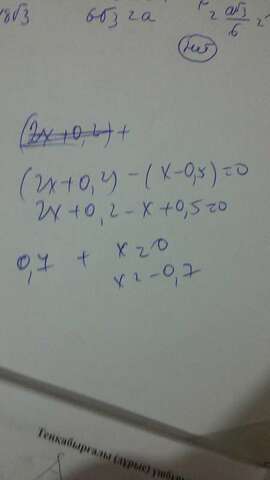 18√3 6√3 = a r = a√3/6 =
(2x+0,2) +
(2x+0,2) - (x-0,5)=0
2x+0,2-x+0,5=0
0,7 + x=0
x=-0,7
Теңқабырғалы (дұрыс) үшбұ